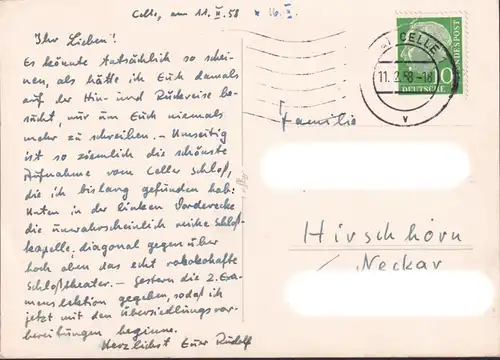 Celle, am 11. II. 58 * 16. II.
Ihr Lieben!
Es könnte tatsächlich so schei-
nen, als hätte ich Euch damals
auf der Hin- und Rückreise be-
sucht, nur um Euch niemals
mehr zu schreiben. – Umseitig
ist so ziemlich die schönste
Aufnahme vom Celler Schloß,
die ich bislang gefunden hab:
Unten in der linken Vorderecke
die unwahrscheinlich reiche Schloß-
kapelle, diagonal gegenüber
hoch oben das echt rokokohafte
Schloßtheater. – Gestern die 2. Exa-
menslektion gegeben, sodaß ich
jetzt mit den Übersiedlungsvor-
bereitungen beginne.
Herzlichst Euer Rudolf
CELLE
11.2.58-18
v
DEUTSCHE BUNDESPOST
10
Familie
Hirschhorn
/ Neckar